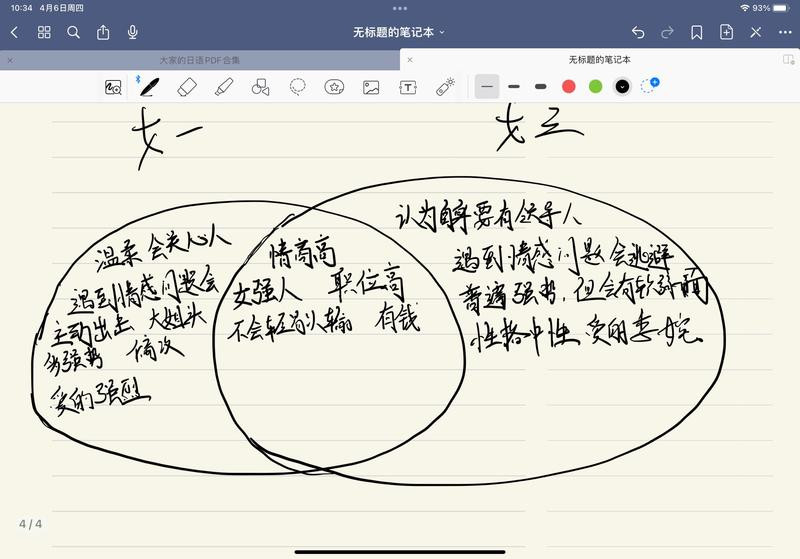 10:34 4月6日周四
93%
无标题的笔记本
大家的日语PDF合集
无标题的笔记本
女一
女三
温柔 会关心人
遇到情感问题会
主动出击 大姐头
偏攻
爱的强烈
情商高
女强人 职位高
不会轻易认输 有钱
认为自己要有领导人
遇到情感问题会逃避
普遍强势,但会有软弱面
性格中性 爱的委婉
4 / 4